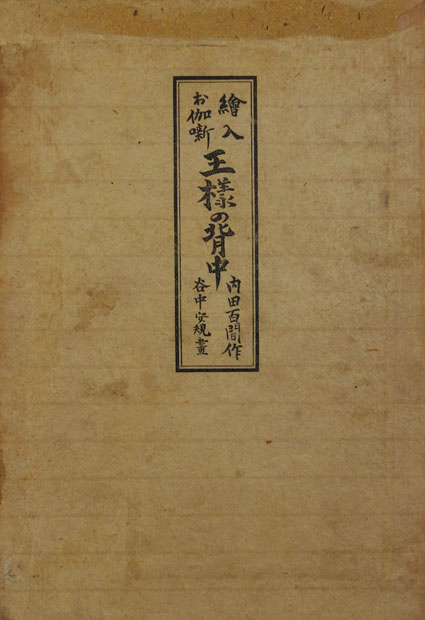 繪入
お伽噺
王様の背中
内田百閒作
谷中安規畫